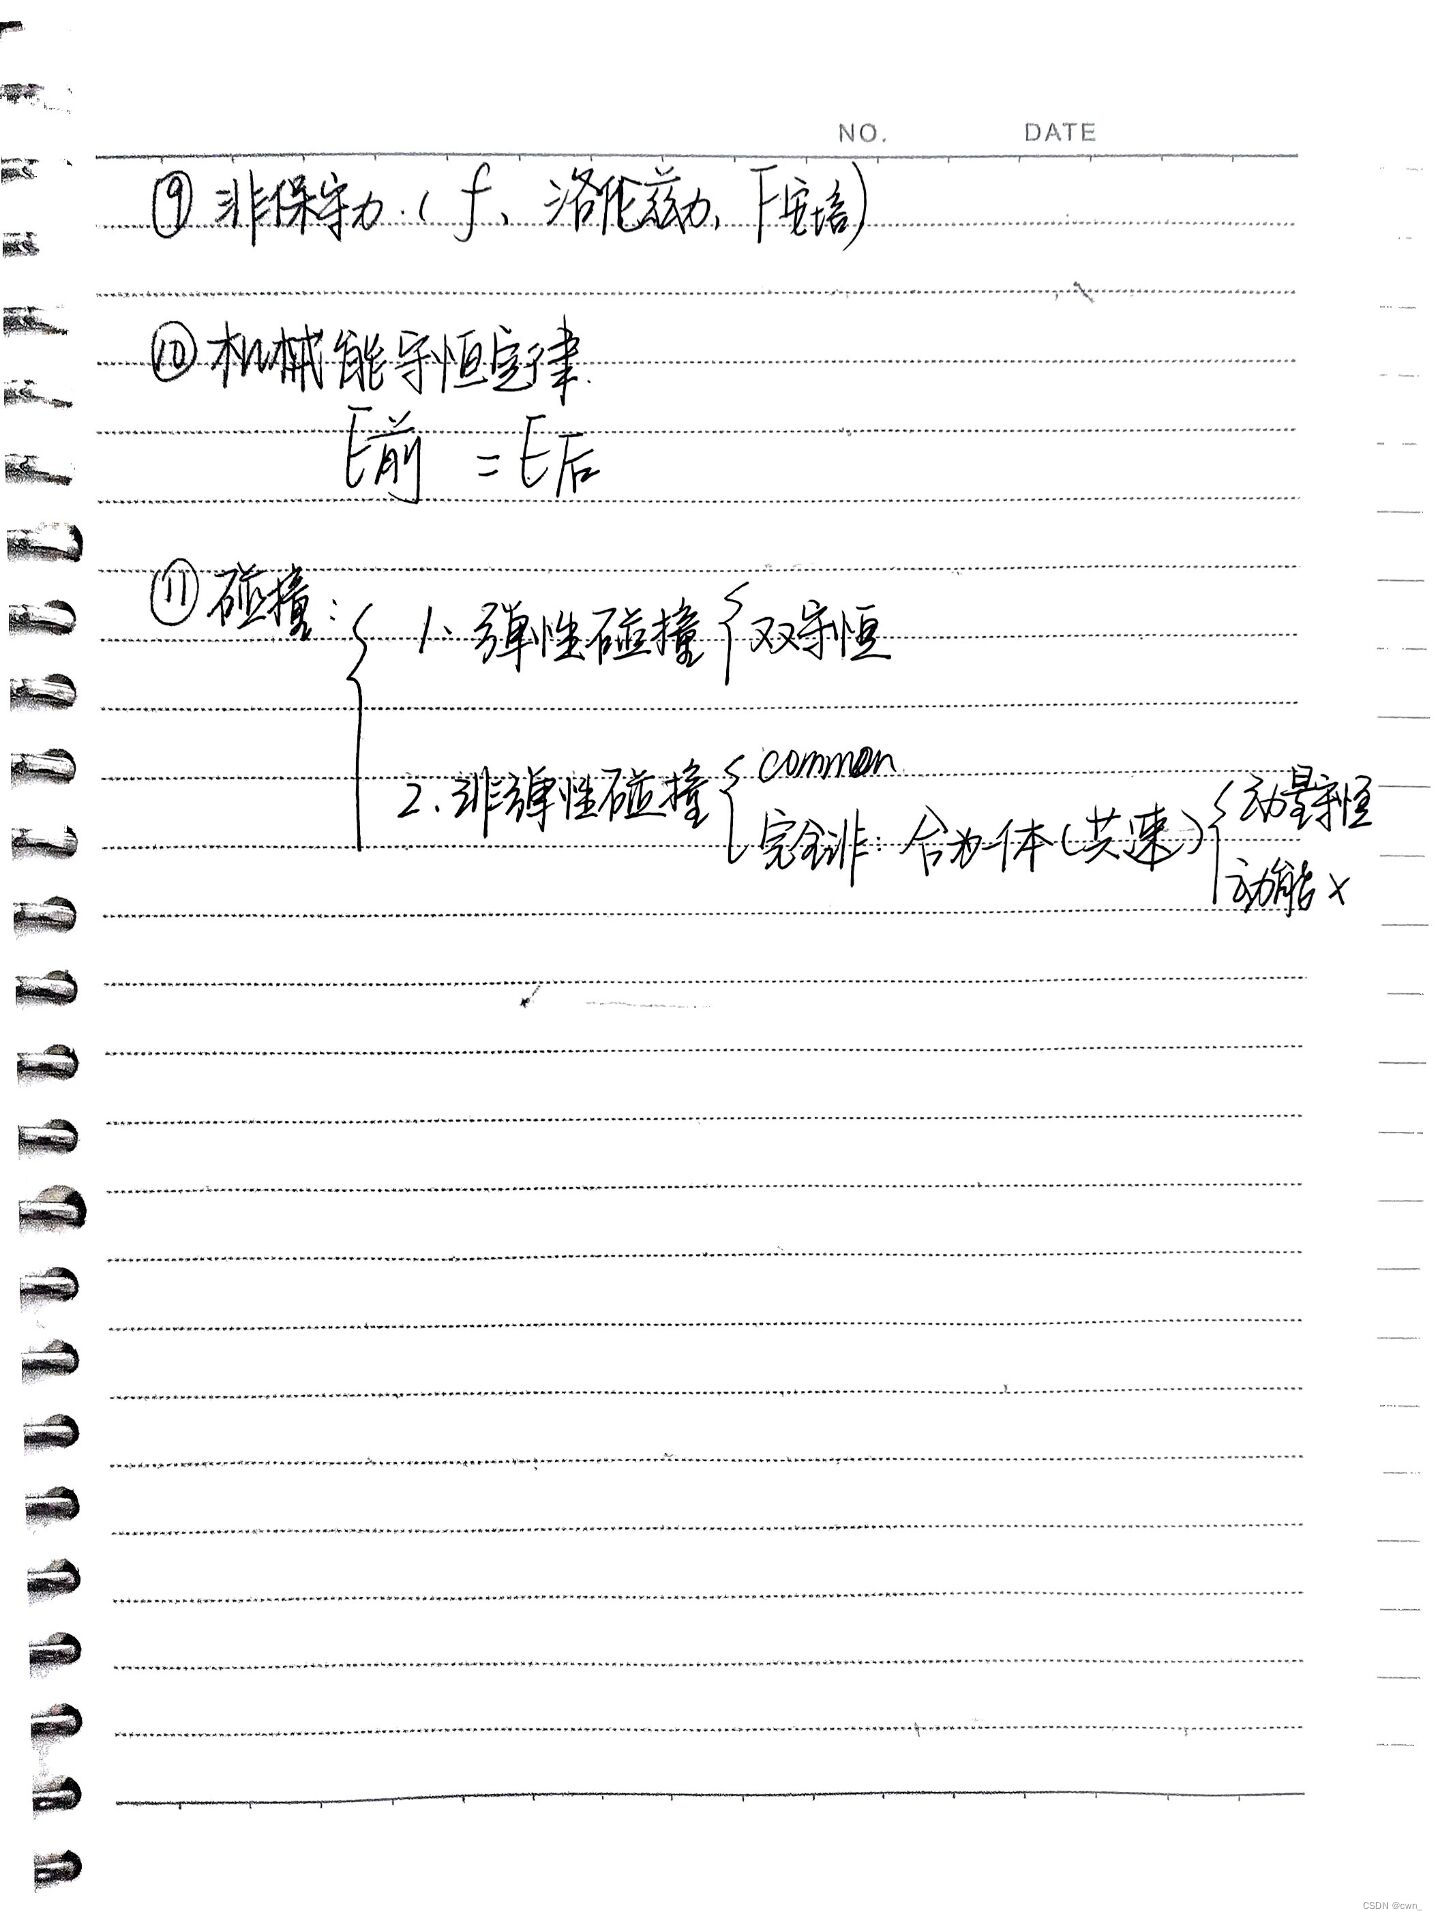 NO. DATE
⑨ 非保守力.( f、洛伦兹力、F安培)
⑩ 机械能守恒定律.
E前 = E后
⑪ 碰撞: { 1、弹性碰撞 { 双守恒
2. 非弹性碰撞 { common
完全非: 合为一体(共速) { 动量守恒
动能 ×
CSDN @cwn_